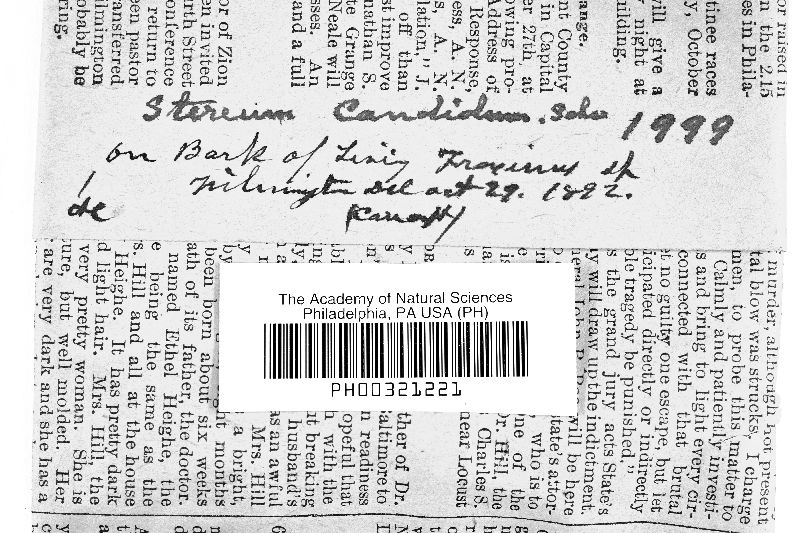 Stereum Candidum. Schw 1999
on Bark of Livig Fraxinus
Wilmington Del oct 29. 1892.
The Academy of Natural Sciences
Philadelphia, PA USA (PH)
PH00321221
or of Zion
en invited
orth Street
onference
return to
een pastor
ransferred
ilmington
obably be
ring.
nt County
in Capital
er 27th, at
owing pro-
Address of
Response,
ess, A. N.
s, A. N.
lation," J.
off than
st improve
nathan S.
te Grange
Neale will
sses. An
and a full
or raised in
n the 2.15
es in Phila-
tinee races
y, October
will give a
y night at
uilding.
murder, although not present
tal blow was struck, I charge
men, to probe this matter to
Calmly and patiently investi-
s and bring to light every cir-
connected with that brutal
et no guilty one escape, but let
icipated directly or indirectly
ble tragedy be punished."
s the grand jury acts State's
y will draw up the indictment.
will be here
State's attor-
, who is to
one of the
Dr. Hill, the
Charles S.
near Locust
ther of Dr.
altimore to
n readiness
opeful that
n with the
nt breaking
husband's
as an awful
Mrs. Hill
a bright,
ht months
been born about six weeks
ath of its father, the doctor.
named Ethel Heighe, the
e being the same as the
s. Hill and all at the house
Heighe. It has pretty dark
d light hair. Mrs. Hill, the
very pretty woman. She is
ure, but well molded. Her
are very dark and she has a